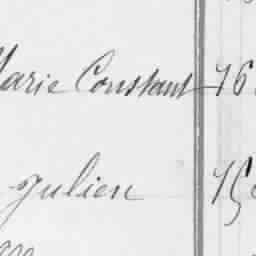 Marie Constant 76
Julien 75